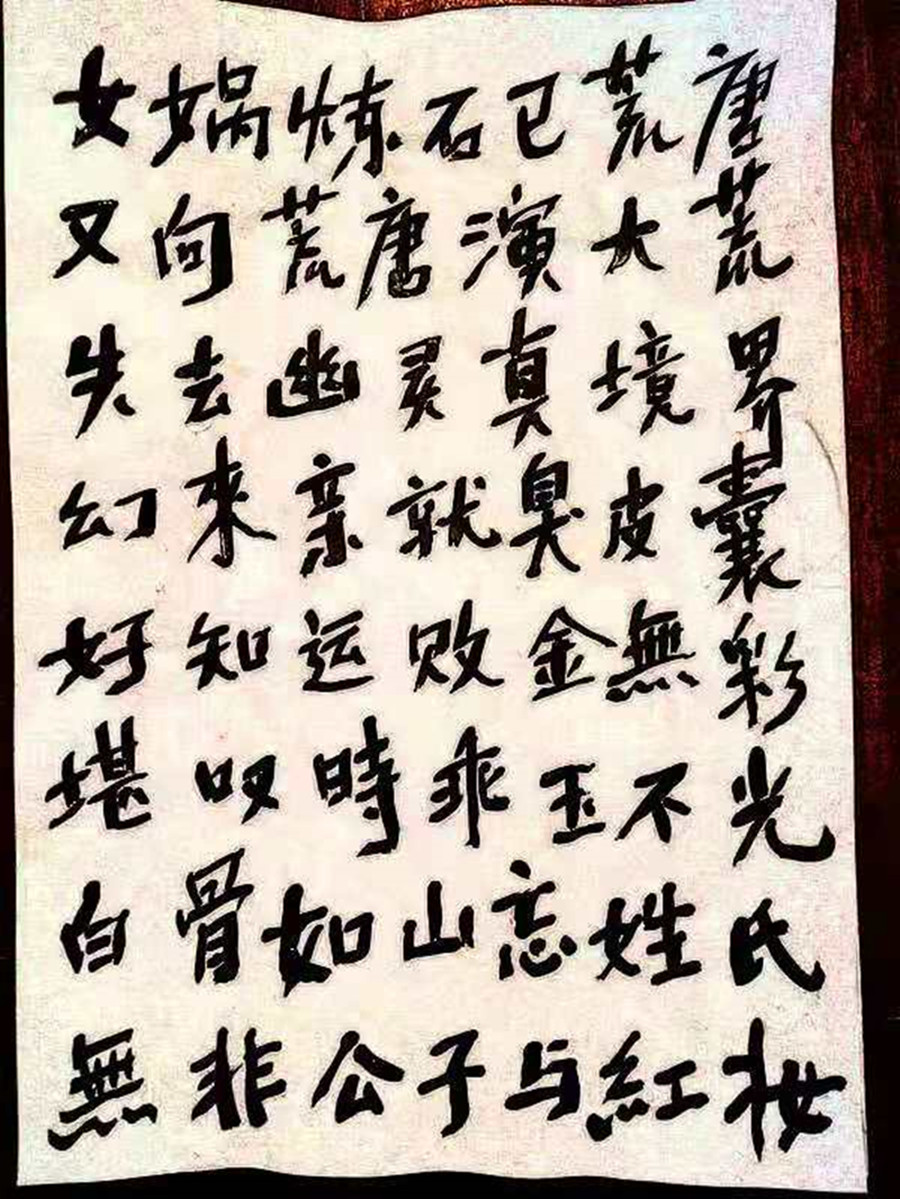 女娲炼石已荒唐
又向荒唐演大荒
失去幽灵真境界
幻來亲就臭皮囊
好知运败金無彩
堪叹時乖玉不光
白骨如山忘姓氏
無非公子与紅妝